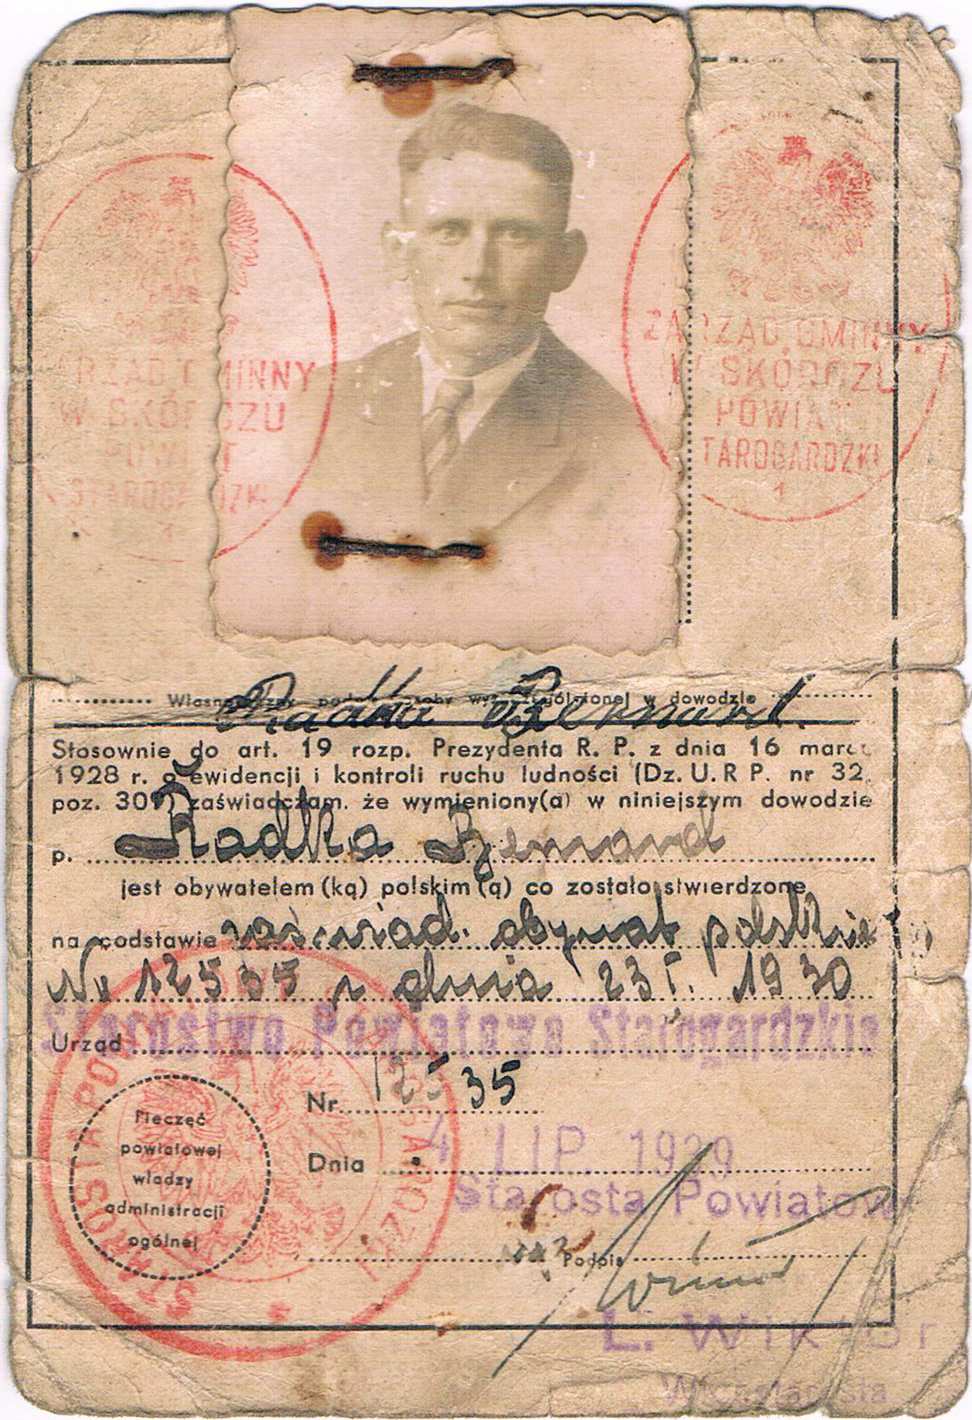 ZARZĄD GMINNY
W SKÓRCZU
POWIAT
STAROGARDZKI
1
ZARZĄD GMINNY
W SKÓRCZU
POWIAT
STAROGARDZKI
1
Własnoręczny podpis osoby wyszczególnionej w dowodzie
Radka Bernard.
Stosownie do art. 19 rozp. Prezydenta R. P. z dnia 16 marca
1928 r. o ewidencji i kontroli ruchu ludności (Dz. U. R P. nr 32,
poz. 309) zaświadczam, że wymieniony(a) w niniejszym dowodzie
p. Radka Bernard
jest obywatelem (ką) polskim (ą) co zostało stwierdzone
na podstawie zaświad. obywat polskie
Nr 12535 z dnia 1930
Starostwo Powiatowe Starogardzkie
Urząd
Nr. 12535
Dnia 4 LIP. 1939
Starosta Powiatow
Podpis
Pieczęć
powiatowej
władzy
administracji
ogólnej
STAROSTA POWIATOWY
L. Wiktor
Wicestarosta